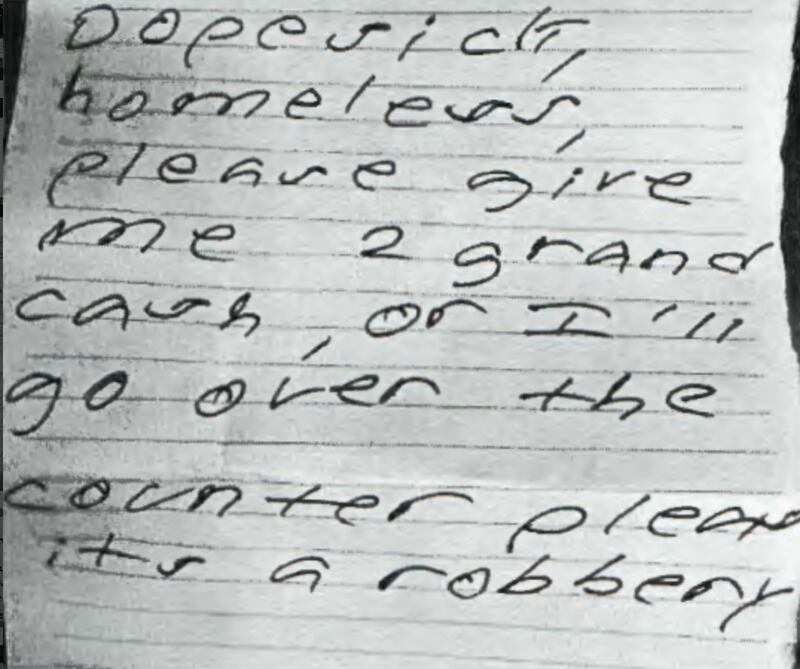 Dopesick,
homeless,
please give
me 2 grand
cash, or I'll
go over the
counter pleas
its a robbery